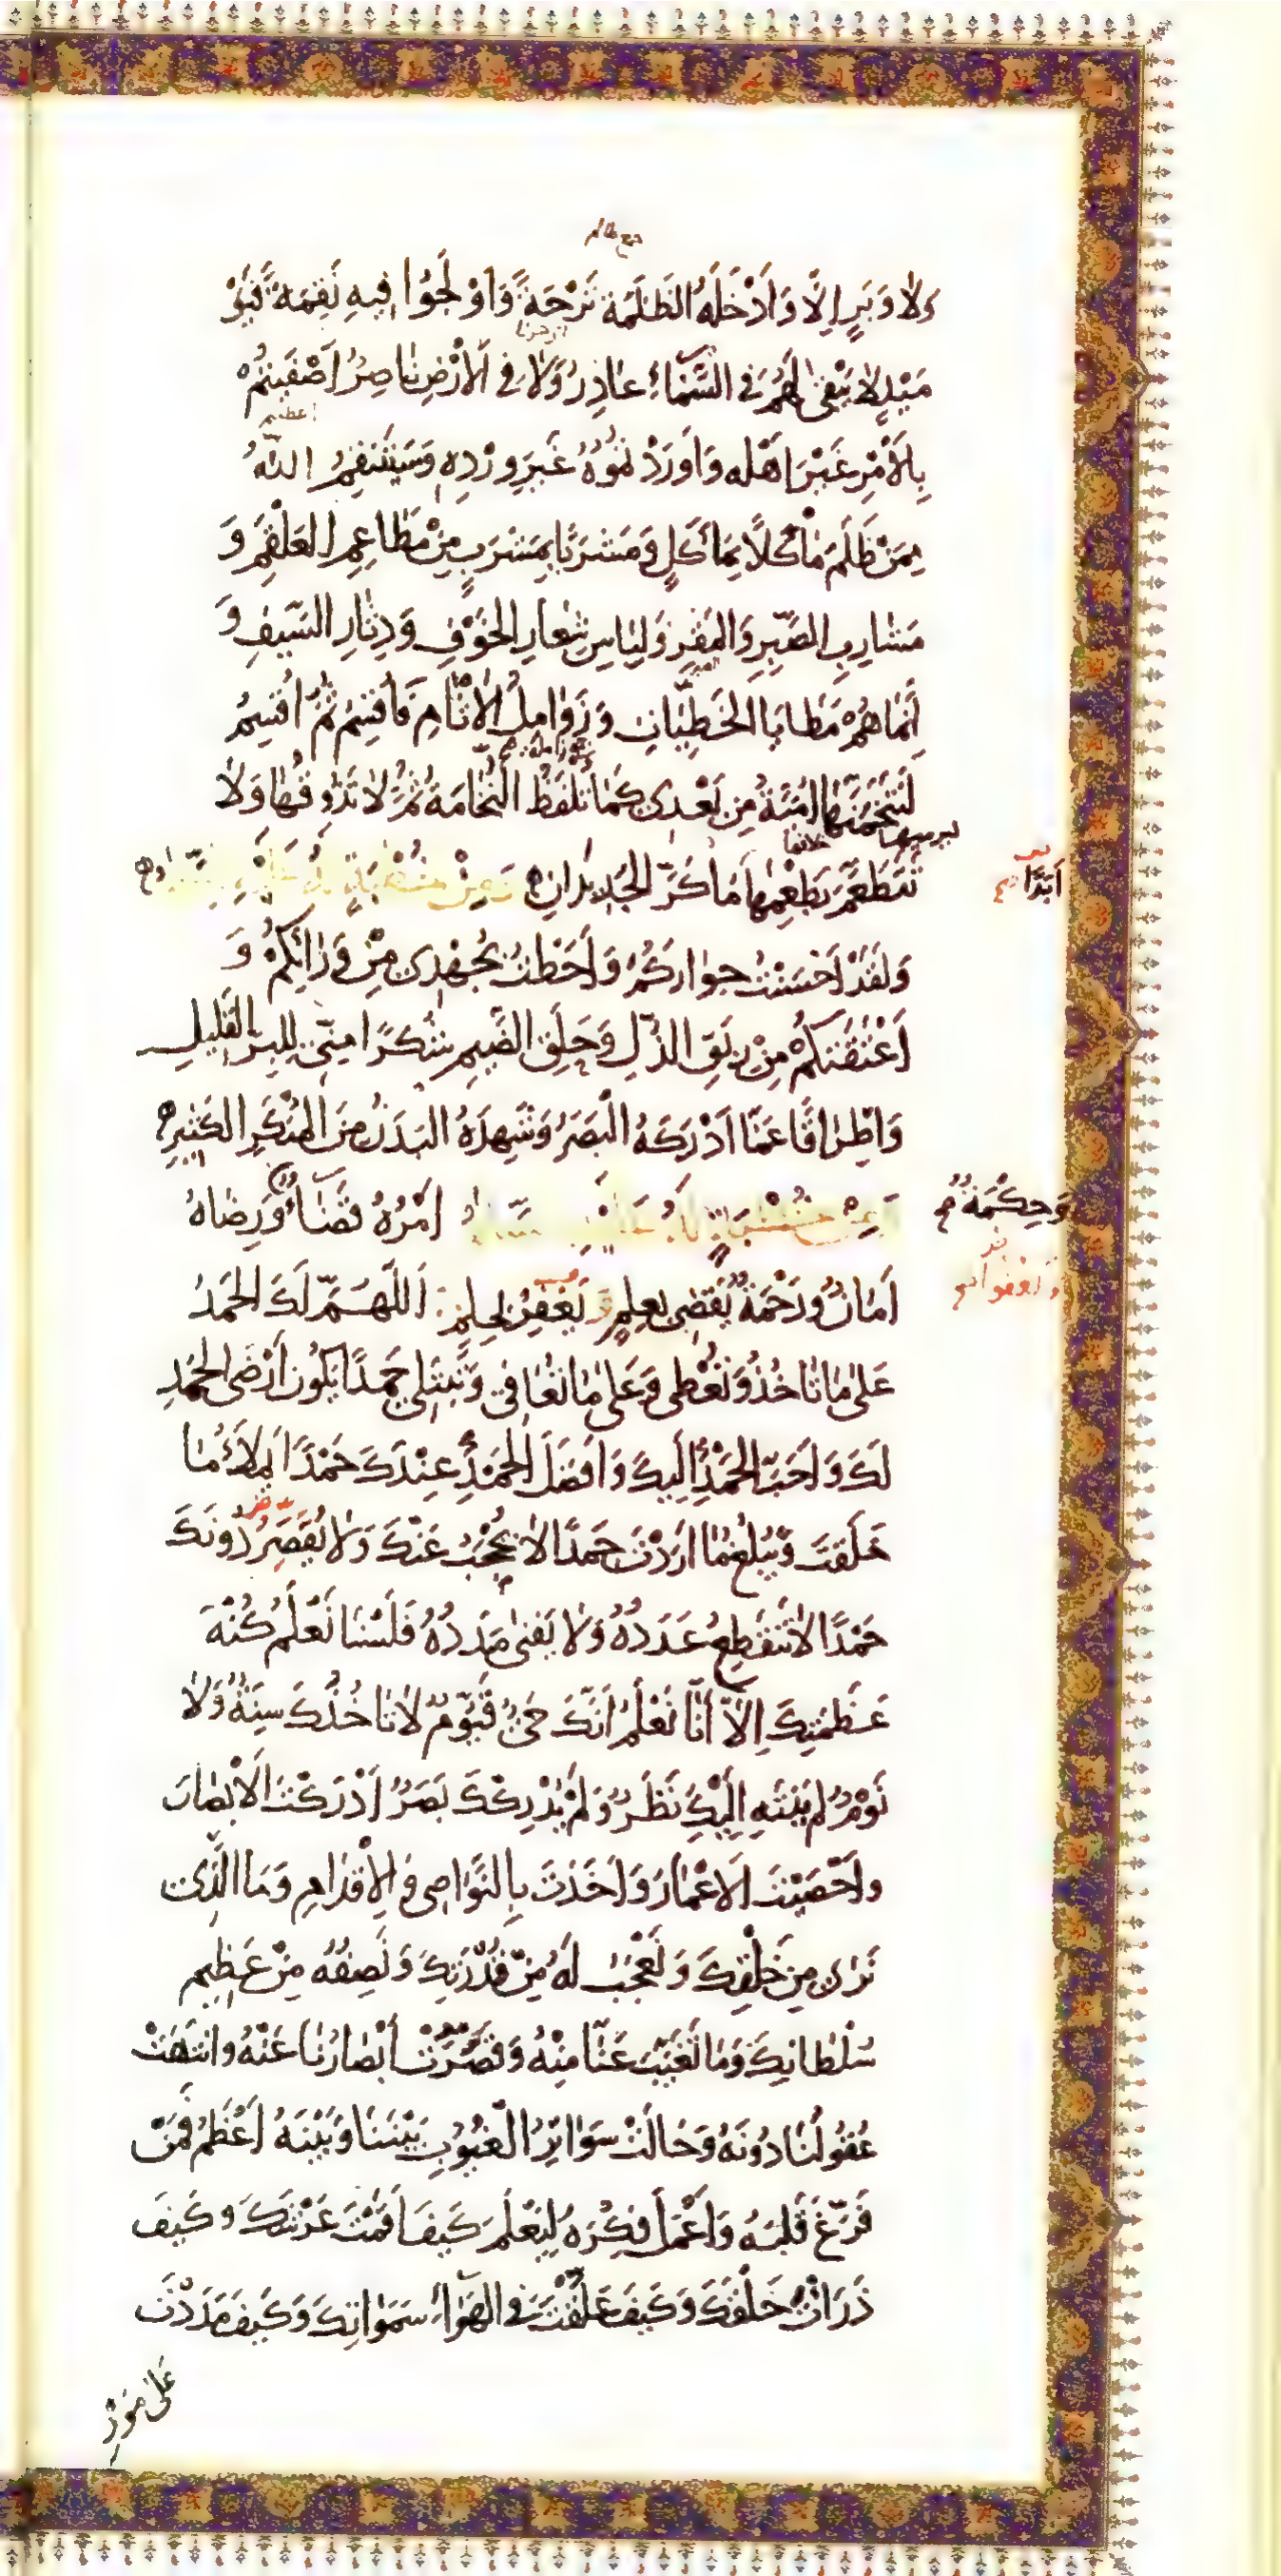 دمع ظالم
وَلَا وَبَرٍ اِلَّا وَاَدْخَلَهُ الظَّلَمَةُ تَرْحَةً وَاَوْلَجُوا فِيهِ نَقِمَةً فَيَوْ
مَئِذٍ لَا يَبْقىٰ لَهُمْ فِي السَّمَاءِ عَاذِرٌ وَلَا فِي الْاَرْضِ نَاصِرٌ اَصْفَيْتُمْ
بِالْاَمْرِ غَيْرَ اَهْلِهِ وَاَوْرَدْتُمُوهُ غَيْرَ وِرْدِهِ وَسَيَنْتَقِمُ اللّٰهُ
مِمَّنْ ظَلَمَ مَأْكَلًا بِمَأْكَلٍ وَمَشْرَبًا بِمَشْرَبٍ مِنْ مَطَاعِمِ العَلْقَمِ وَ
مَشَارِبِ الصَّبِرِ وَالمَقِرِ وَلِبَاسِ شِعَارِ الخَوْفِ وَدِثَارِ السَّيْفِ وَ
اِنَّمَا هُمْ مَطَايَا الخَطِيئَاتِ وَزَوَامِلُ الْآثَامِ فَاُقْسِمُ ثُمَّ اُقْسِمُ
لَتَنْخَمَنَّهَا اُمَيَّةُ مِنْ بَعْدِي كَمَا تُلْفَظُ النُّخَامَةُ ثُمَّ لَا تَذُوقُهَا وَلَا
تَتَطَعَّمُ بِطَعْمِهَا مَا كَرَّ الجَدِيدَانِ وَمِنْ خُطْبَةٍ لَهُ عَلَيْهِ السَّلَامُ
اَبَدًا
وَلَقَدْ اَحْسَنْتُ جِوَارَكُمْ وَاَحَطْتُ بِجُهْدِي مِنْ وَرَائِكُمْ وَ
اَعْتَقْتُكُمْ مِنْ رِبَقِ الذُّلِّ وَحَلَقِ الضَّيْمِ شُكْرًا مِنِّي لِلْبِرِّ القَلِيلِ
وَاِطْرَاقًا عَمَّا اَدْرَكَهُ الْبَصَرُ وَشَهِدَهُ البَدَنُ مِنَ المُنْكَرِ الكَثِيرِ
وَمِنْ خُطْبَةٍ لَهُ عَلَيْهِ السَّلَامُ اَمْرُهُ قَضَاءٌ وَرِضَاهُ
وَحِكْمَةٌ
اَمَانٌ وَرَحْمَةٌ يَقْضِي بِعِلْمٍ وَيَغْفِرُ بِحِلْمٍ اَللّٰهُمَّ لَكَ الحَمْدُ
عَلىٰ مَا تَاخُذُ وَتُعْطِي وَعَلىٰ مَا تُعَافِي وَتَبْتَلِي حَمْدًا يَكُونُ اَرْضَى الحَمْدِ
لَكَ وَاَحَبَّ الحَمْدِ اِلَيْكَ وَاَفْضَلَ الحَمْدِ عِنْدَكَ حَمْدًا يَمْلَأُ مَا
خَلَقْتَ وَيَبْلُغُ مَا اَرَدْتَ حَمْدًا لَا يُحْجَبُ عَنْكَ وَلَا يُقْصَرُ دُونَكَ
حَمْدًا لَا يَنْقَطِعُ عَدَدُهُ وَلَا يَفْنىٰ مَدَدُهُ فَلَسْنَا نَعْلَمُ كُنْهَ
عَظَمَتِكَ اِلَّا اَنَّا نَعْلَمُ اَنَّكَ حَيٌّ قَيُّومٌ لَا تَاخُذُكَ سِنَةٌ وَلَا
نَوْمٌ لَمْ يَنْتَهِ اِلَيْكَ نَظَرٌ وَلَمْ يُدْرِكْكَ بَصَرٌ اَدْرَكْتَ الْاَبْصَارَ
وَاَحْصَيْتَ الْاَعْمَارَ وَاَخَذْتَ بِالنَّوَاصِي وَالْاَقْدَامِ وَمَا الَّذِي
نَرىٰ مِنْ خَلْقِكَ وَنَعْجَبُ لَهُ مِنْ قُدْرَتِكَ وَنَصِفُهُ مِنْ عَظِيمِ
سُلْطَانِكَ وَمَا تَغَيَّبَ عَنَّا مِنْهُ وَقَصُرَتْ اَبْصَارُنَا عَنْهُ وَانْتَهَتْ
عُقُولُنَا دُونَهُ وَحَالَتْ سَوَاتِرُ الْغُيُوبِ بَيْنَنَا وَبَيْنَهُ اَعْظَمُ فَمَنْ
فَرَّغَ قَلْبَهُ وَاَعْمَلَ فِكْرَهُ لِيَعْلَمَ كَيْفَ اَقَمْتَ عَرْشَكَ وَكَيْفَ
ذَرَأْتَ خَلْقَكَ وَكَيْفَ عَلَّقْتَ فِي الهَوَاءِ سَمَوَاتِكَ وَكَيْفَ مَدَدْتَ
عَلىٰ مَوْرِ